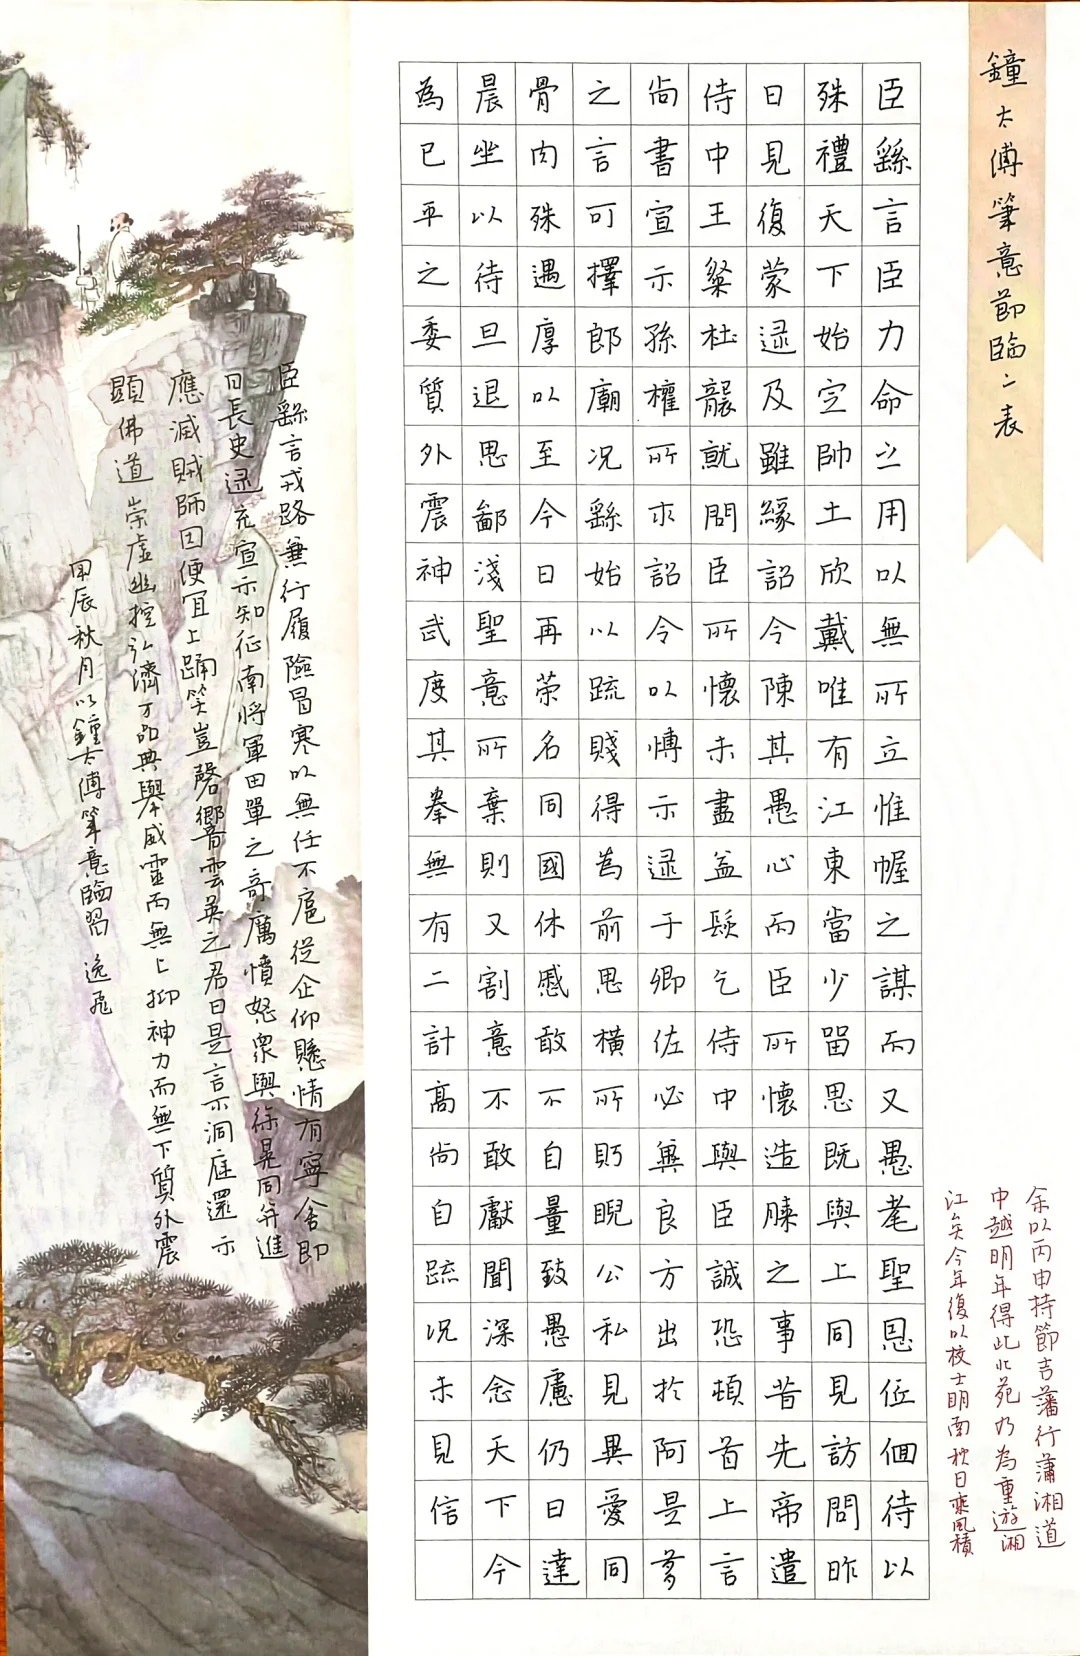 鐘太傅筆意節臨二表
臣繇言臣力命之用以無所立惟幄之謀而又愚耄聖恩低佪待以
殊禮天下始定帥土欣戴唯有江東當少留思既與上同見訪問昨
日見復蒙逮及雖緣詔令陳其愚心而臣所懷造膝之事昔先帝遣
侍中王粲杜襲就問臣所懷未盡益髮乞侍中與臣誠恐頓首上言
尚書宣示孫權所求詔令以博示逮于卿佐必冀良方出於阿是芻
之言可擇郎廟况繇始以疏賤得為前恩橫所眄睨公私見異愛同
骨肉殊遇厚以至今日再荣名同國休慼敢不自量致愚慮仍日達
晨坐以待旦退思鄙淺聖意所棄則又割意不敢獻聞深念天下今
為已平之委質外震神武度其拳無有二計高尚自疏況未見信
余以丙申持節吉藩行瀟湘道
中越明年得此北苑乃為重遊湘
江矣今年復以校士明南秋日乘風積
臣繇言戎路兼行履險冒寒以無任不扈從企仰懸情有寧舍即
日長史逮充宣示知征南將軍田單之奇厲憤怒眾與徐晃同并進
應滅賊師因便宜上踊笑豈磬響雲英之君曰是言不洞庭還示
顕佛道崇虛幽控弘濟万品典舉威靈而無上抑神力而無下質外震
甲辰秋月以鐘太傅筆意臨習 逸飛